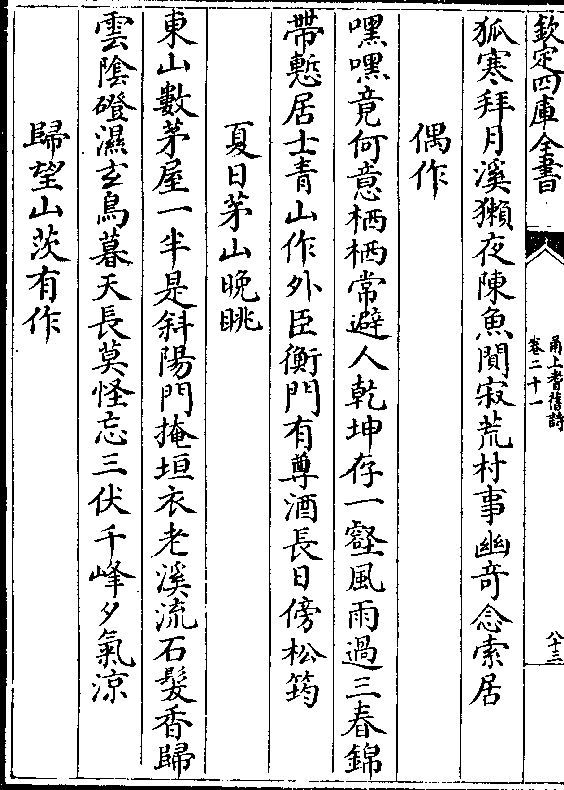 欽定四庫全書
甬上耆舊詩
卷二十一
八十三
狐寒拜月溪獺夜陳魚閴寂荒村事幽竒念索居
偶作
嘿嘿竟何意栖栖常避人乾坤存一壑風雨過三春錦
帶慙居士青山作外臣衡門有尊酒長日傍松筠
夏日茅山晚眺
東山數茅屋一半是斜陽門掩垣衣老溪流石髮香歸
雲陰磴濕玄鳥暮天長莫怪忘三伏千峰夕氣涼
歸望山茨有作